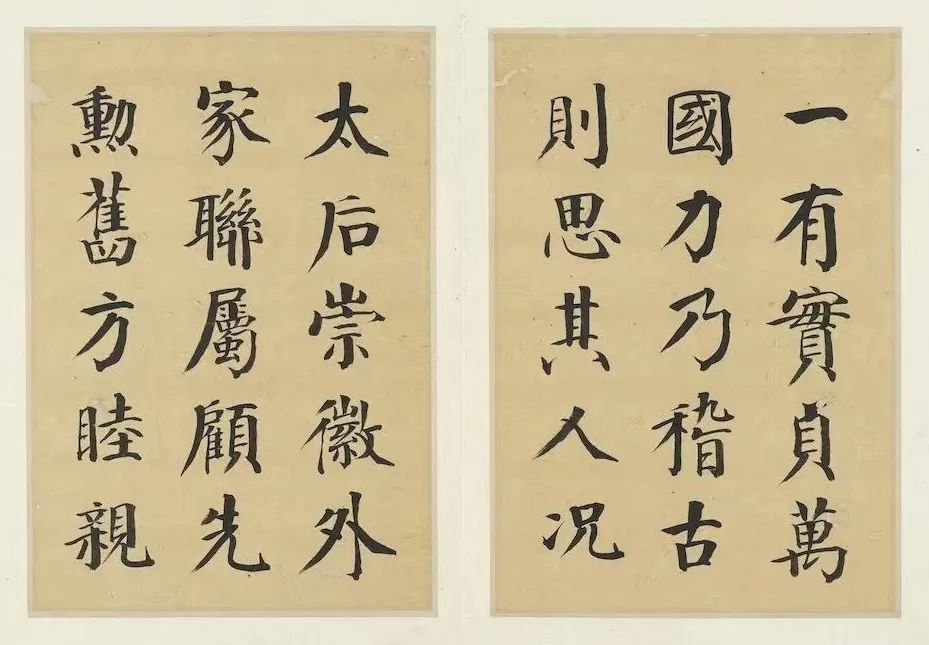 一有實貞萬
國力乃稽古
則思其人况
太后崇徽外
家聯屬顧先
勲舊方睦親